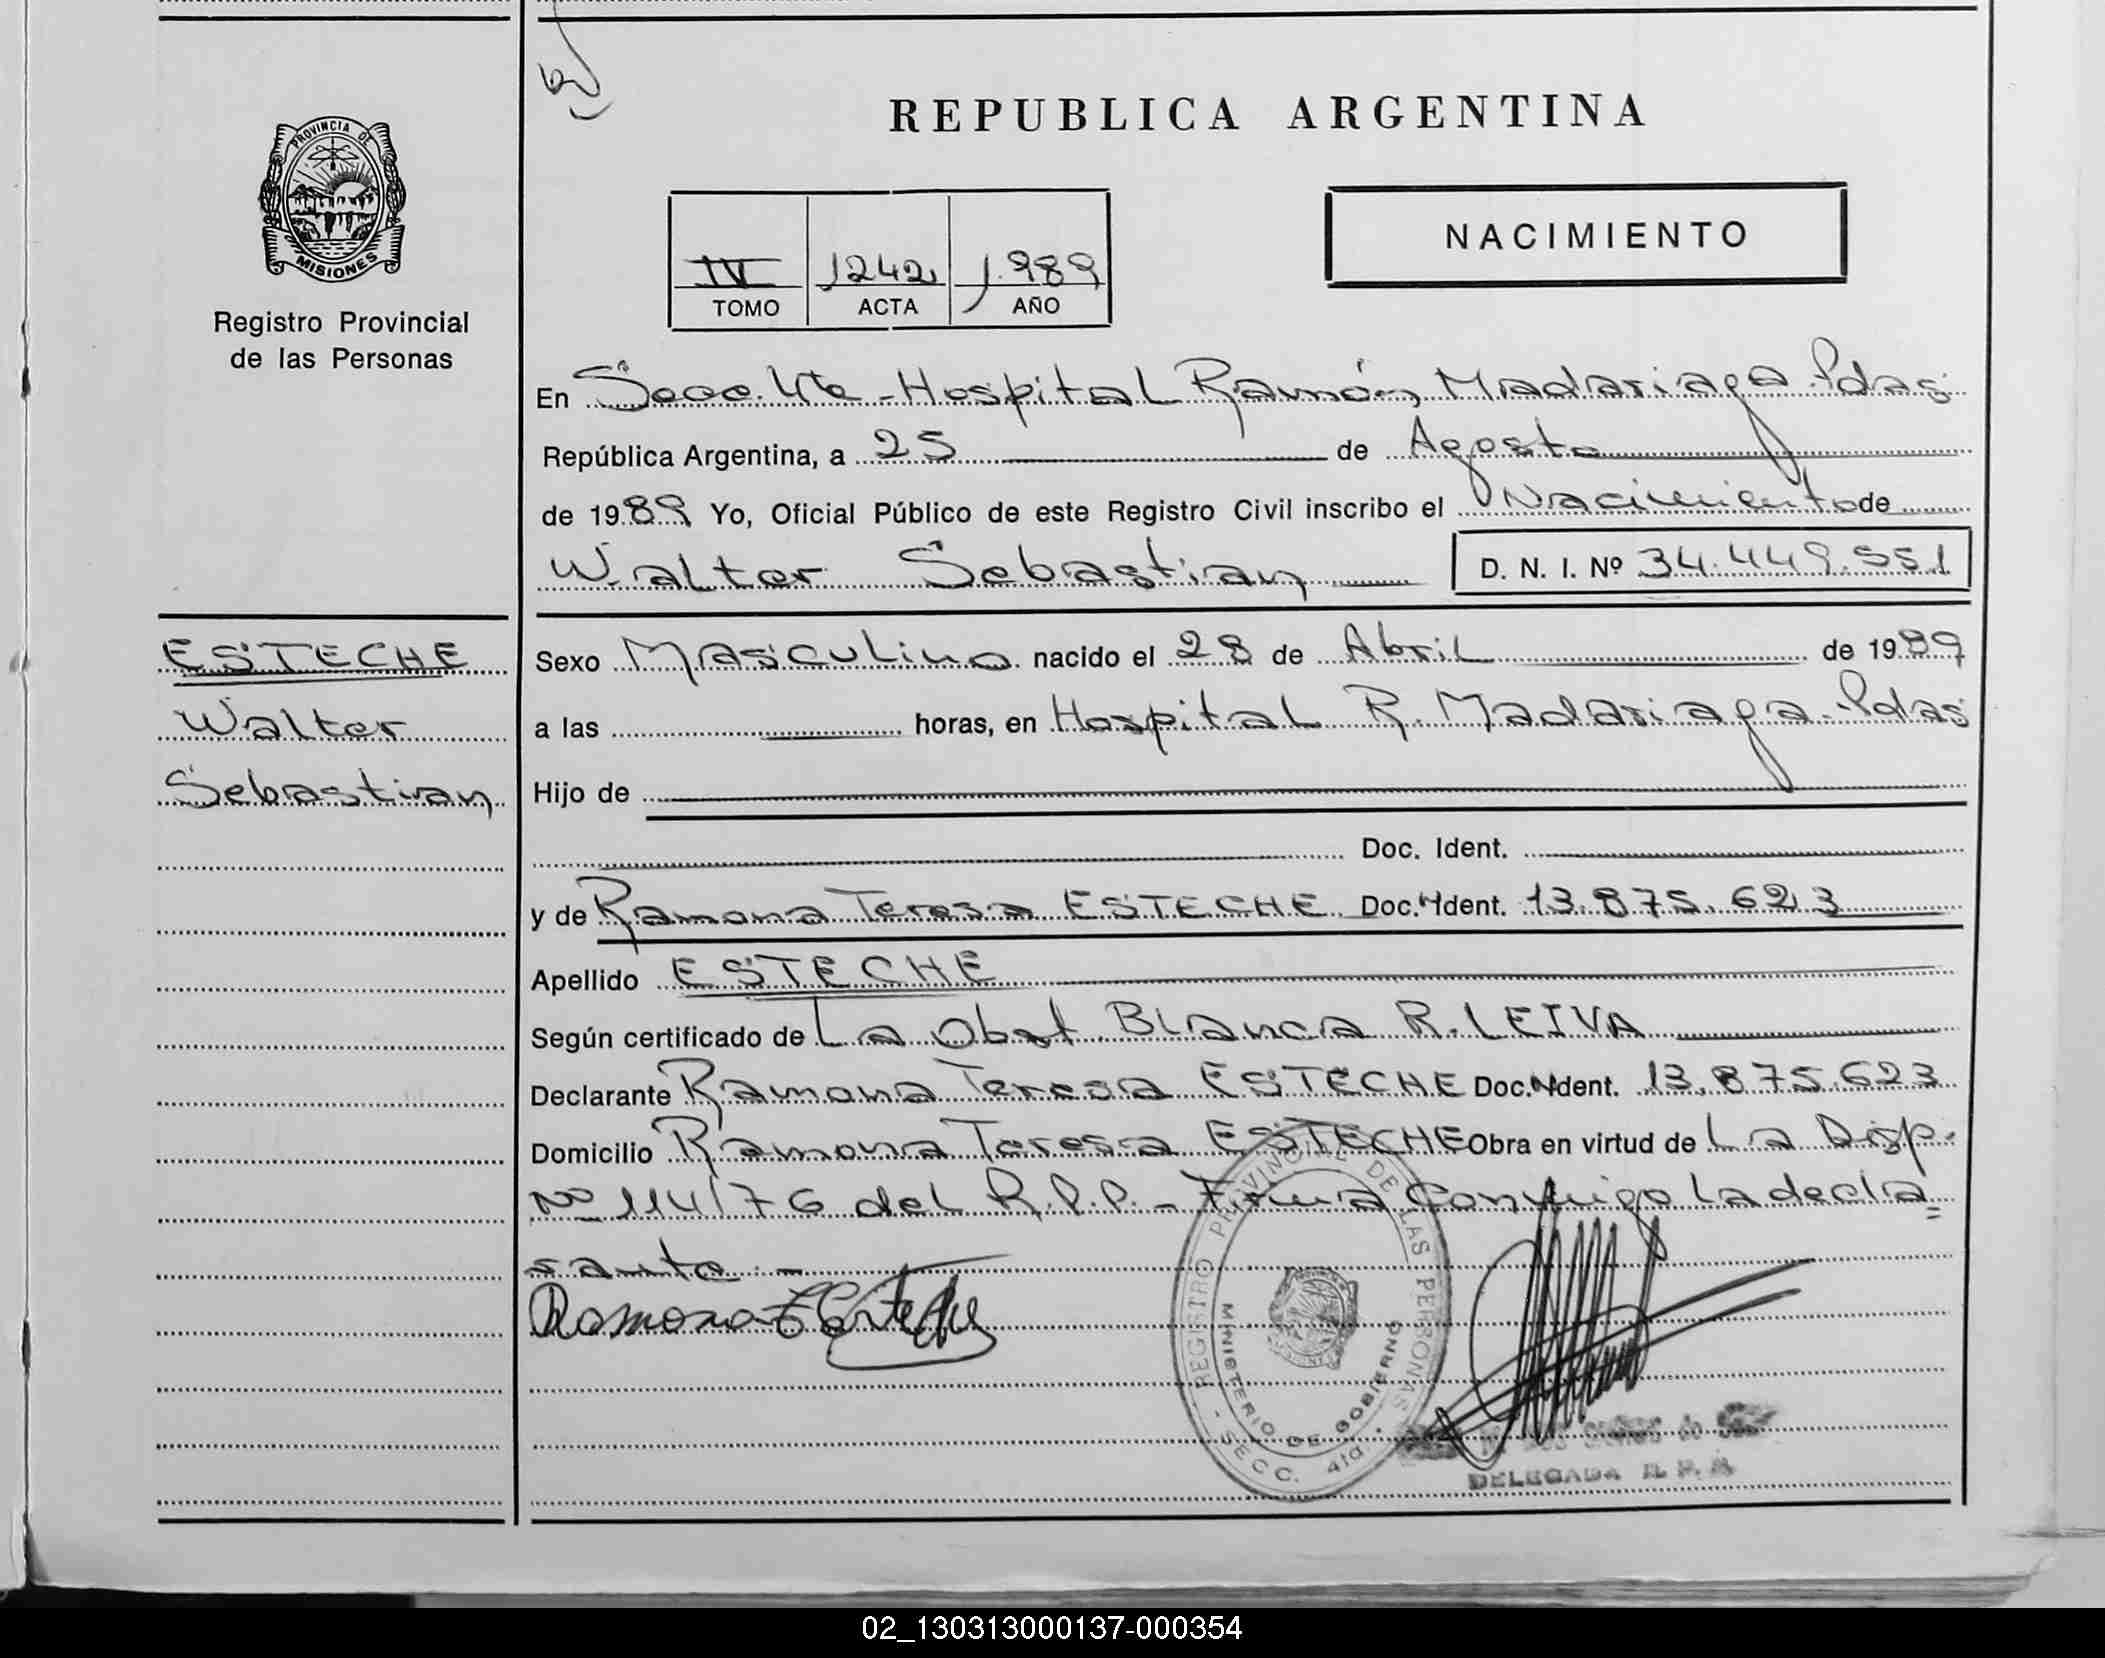 REPUBLICA ARGENTINA
PROVINCIA DE
MISIONES
Registro Provincial
de las Personas
IV 1242 1.989
TOMO ACTA AÑO
NACIMIENTO
En Secc. 4ta - Hospital Ramón Madariaga - Pdas
República Argentina, a 25 de Agosto
de 1989 Yo, Oficial Público de este Registro Civil inscribo el Nacimiento de
Walter Sebastian D. N. I. Nº 34.449.551
ESTECHE
Walter
Sebastian
Sexo Masculino nacido el 28 de Abril de 1989
a las horas, en Hospital R. Madariaga - Pdas
Hijo de
Doc. Ident.
y de Ramona Teresa ESTECHE Doc. Ident. 13.875.623
Apellido ESTECHE
Según certificado de La Obst. Blanca R. LEIVA
Declarante Ramona Teresa ESTECHE Doc. Ident. 13.875.623
Domicilio Ramona Teresa ESTECHE Obra en virtud de La Disp.
Nº 114/76 del R.P.P. - Firma Conmigo la decla=
rante. -
Ramona T Esteche
REGISTRO PROVINCIAL DE LAS PERSONAS
MINISTERIO DE GOBIERNO
- SECC. 4ta. -
DELEGADA R. P. P.
02_130313000137-000354